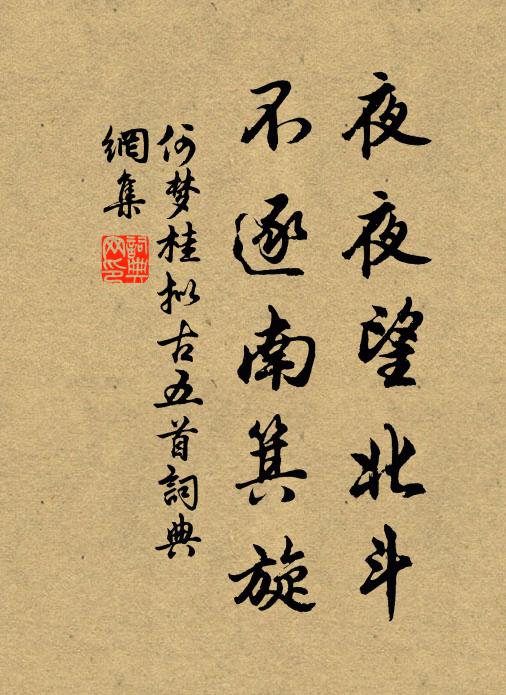 夜夜望北斗
不逐南箕旋
何梦桂拟古五首詞典
網集
詞典
网印